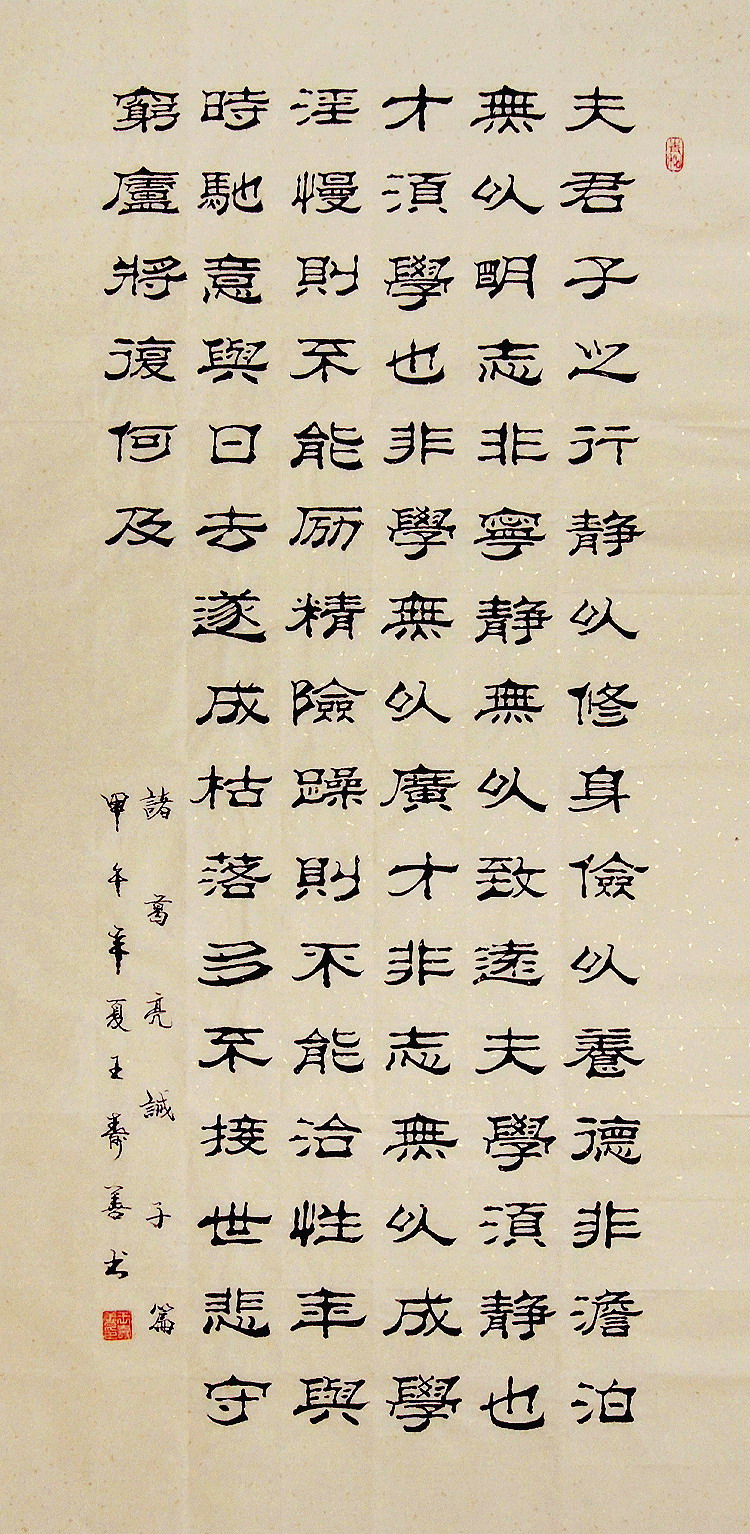 夫君子之行静以修身儉以養德非澹泊
無以明志非寧静無以致遠夫學須静也
才須學也非學無以廣才非志無以成學
淫慢則不能励精險躁則不能治性年與
時馳意與日去遂成枯落多不接世悲守
窮廬將復何及
諸葛亮誡子篇
甲午年夏王壽善书